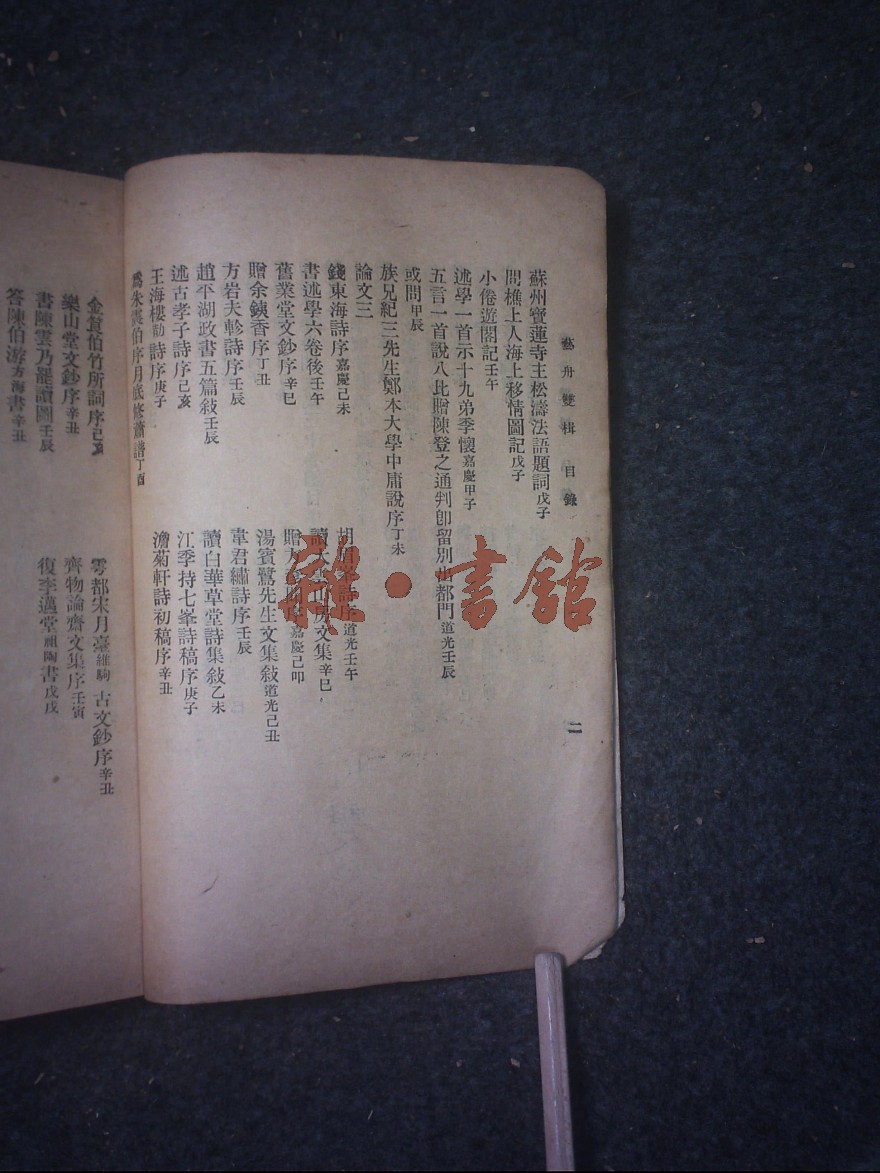 藝舟雙楫 目錄 二
蘇州寶蓮寺主松濤法語題詞戊子
問樵上人海上移情圖記戊子
小倦遊閣記壬午
述學一首示十九弟季懷嘉慶甲子
五言一首說八比贈陳登之通判卽留別 都門道光壬辰
或問甲辰
族兄紀三先生鄭本大學中庸說序丁未
論文三
錢東海詩序嘉慶己未 胡 詩序道光壬午
書述學六卷後壬午 讀大 山房文集辛巳
舊業堂文鈔序辛巳 贈 嘉慶己卯
贈余鐵香序丁丑 湯賓鷺先生文集敍道光己丑
方岩夫軫詩序壬辰 韋君繡詩序壬辰
趙平湖政書五篇敍壬辰 讀白華草堂詩集敍乙未
述古孝子詩序己亥 江季持七峯詩稿序庚子
王海樓 詩序庚子 澹菊軒詩初稿序辛丑
爲朱震伯序月底修簫譜丁酉
金筤伯竹所詞序己亥 雩都宋月臺維駒古文鈔序辛丑
樂山堂文鈔序辛丑 齊物論齋文集序壬寅
書陳雲乃罷讀圖壬辰 復李邁堂祖陶書戊戌
答陳伯游方海書辛丑
䅵・書館